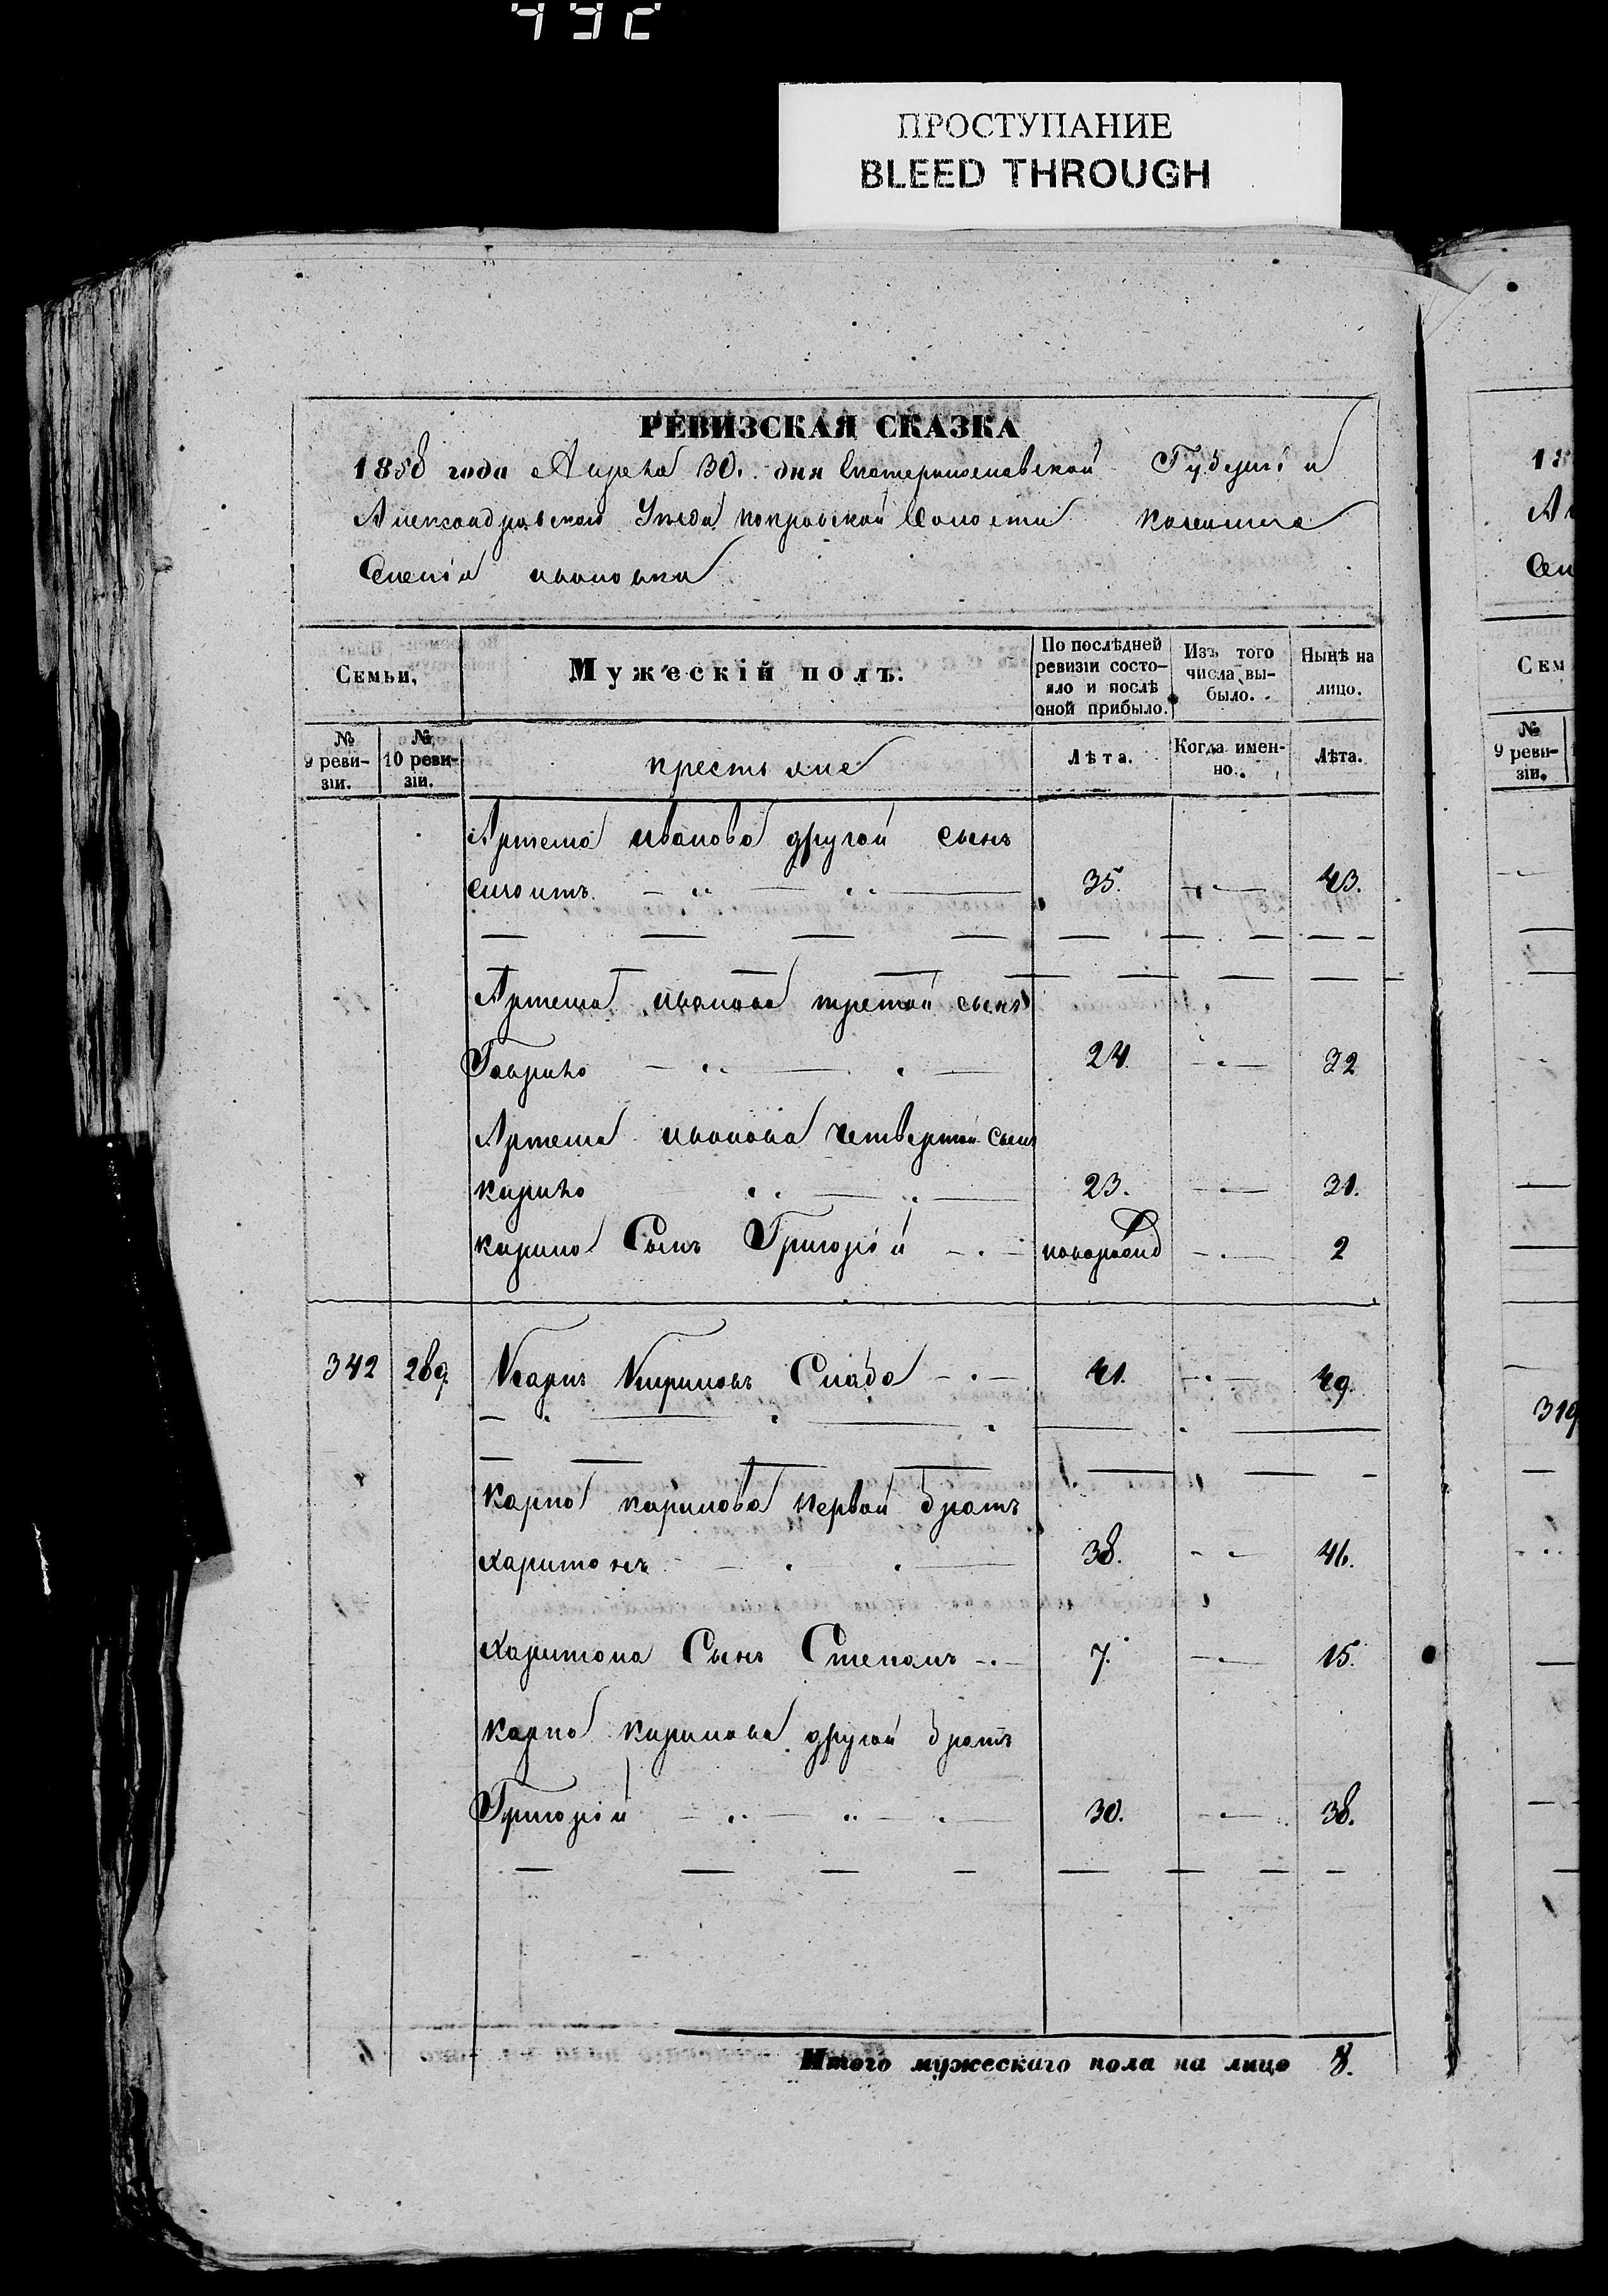 ПРОСТУПАНИЕ
BLEED THROUGH
РЕВИЗСКАЯ СКАЗКА
1858 года Апреля 30. дня Екатеринославской Губерніи
Александровского Уезда покровской Волости
Селенія
Семьи,
Мужескій полъ.
По послѣдней ревизіи состо-
яло и послѣ
оной прибыло.
Изъ того
числа вы-
было.
Нынѣ на
лицо.
№
9 реви-
зіи.
№
10 реви-
зіи.
крестьяне
Лѣта.
Когда имен-
но.
Лѣта.
Артема иванова другой сынъ
35. 43.
Артема иванова третой сынъ
Гаврило 24 32
Артема иванова четвертой сынъ
кирило 23. 31.
кирила Сынъ Григорій 2
342 289. Карпъ Кириловъ Слабо 41. 49.
карпа кирилова первой братъ
харитонъ 38. 46.
харитона Сынъ Степанъ 7. 15.
карпа кирилова другой братъ
Григорій 30. 38.
Итого мужескаго пола на лицо 8.
9 реви-
зіи.
319